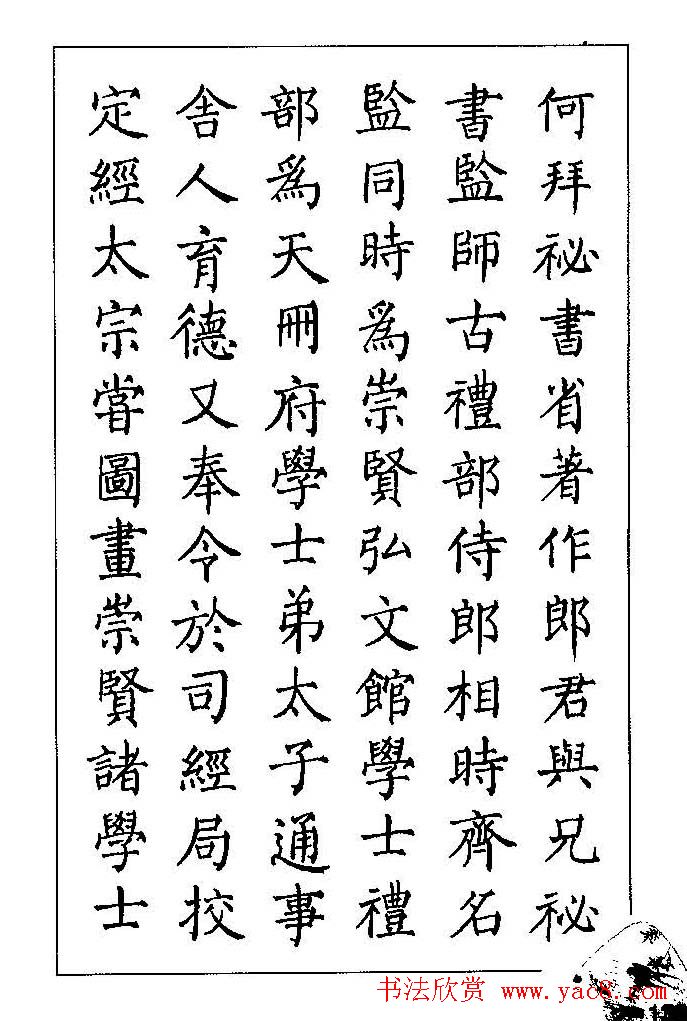 何拜祕書省著作郎君與兄祕
書監師古禮部侍郎相時齊名
監同時爲崇賢弘文館學士禮
部爲天冊府學士弟太子通事
舍人育德又奉令於司經局校
定經太宗甞圖畫崇賢諸學士
书法欣赏 www.yac8.com